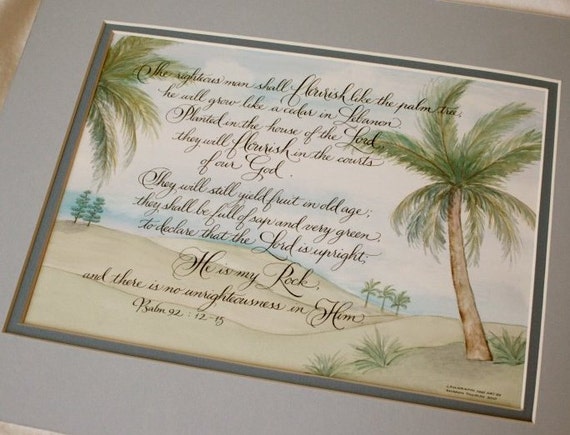 The righteous man shall flourish like the palm tree;
he will grow like a cedar in Lebanon.
Planted in the house of the Lord,
they will flourish in the courts
of our God.
They will still yield fruit in old age;
they shall be full of sap and very green,
to declare that the Lord is upright;
He is my Rock,
and there is no unrighteousness in Him
Psalm 92 : 12-15